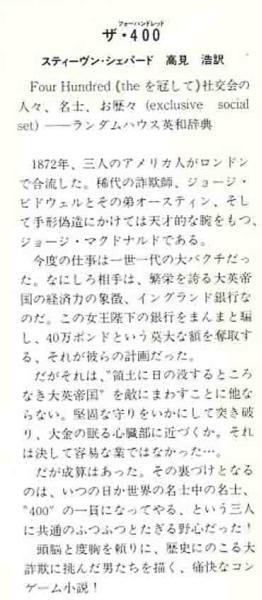 フォーハンドレッド
ザ・400
スティーヴン・シェパード 高見 浩訳
Four Hundred (the を冠して)社交会の
人々、名士、お歴々 (exclusive social
set) ——ランダムハウス英和辞典
1872年、三人のアメリカ人がロンドン
で合流した。稀代の詐欺師、ジョージ・
ビドウェルとその弟オースティン、そし
て手形偽造にかけては天才的な腕をもつ、
ジョージ・マクドナルドである。
今度の仕事は一世一代の大バクチだっ
た。なにしろ相手は、繁栄を誇る大英帝
国の経済力の象徴、イングランド銀行な
のだ。この女王陛下の銀行をまんまと騙
し、40万ポンドという莫大な額を奪取す
る、それが彼らの計画だった。
だがそれは、“領土に日の没するところ
なき大英帝国”を敵にまわすことに他な
らない。堅固な守りをいかにして突き破
り、大金の眠る心臓部に近づくか。それ
は決して容易な業ではなかった…。
だが成算はあった。その裏づけとなる
のは、いつの日か世界の名士中の名士、
“400”の一員になってやる、という三人
に共通のふつふつとたぎる野心だった！
頭脳と度胸を頼りに、歴史にのこる大
詐欺に挑んだ男たちを描く、痛快なコン
ゲーム小説！